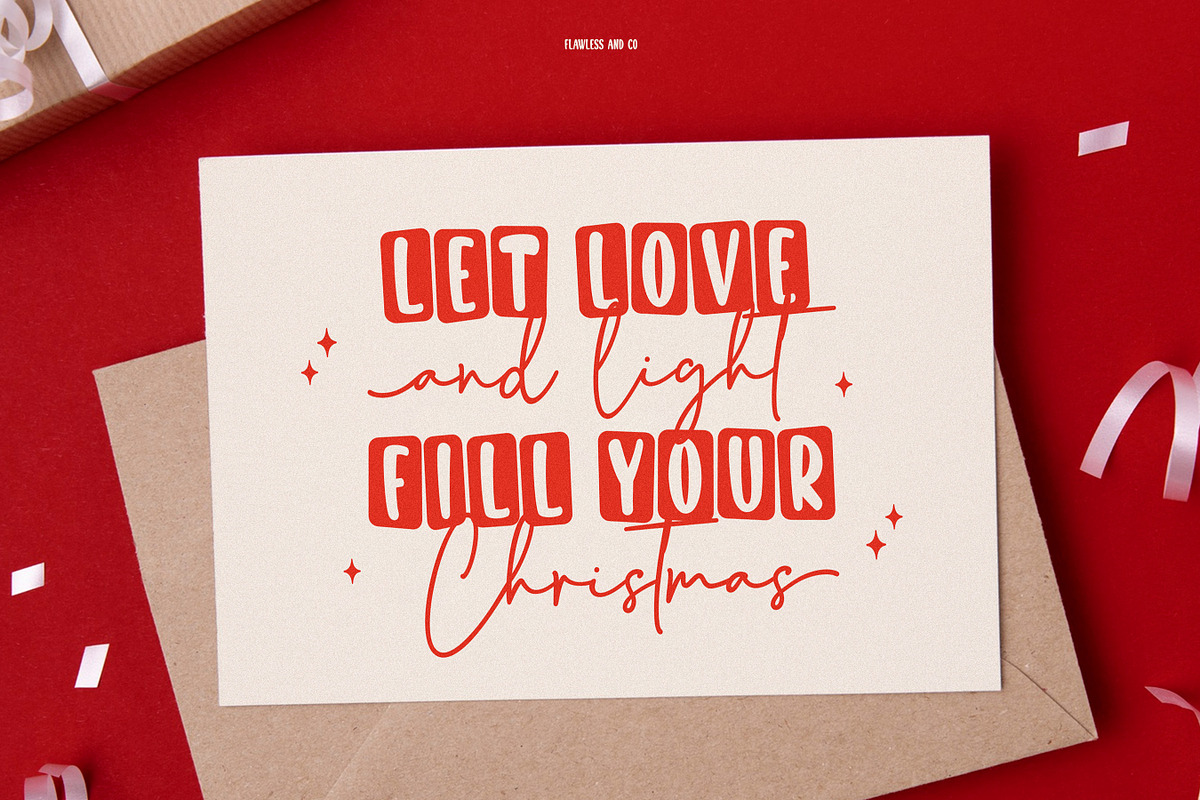 FLAWLESS AND CO
LET LOVE
and light
FILL YOUR
Christmas